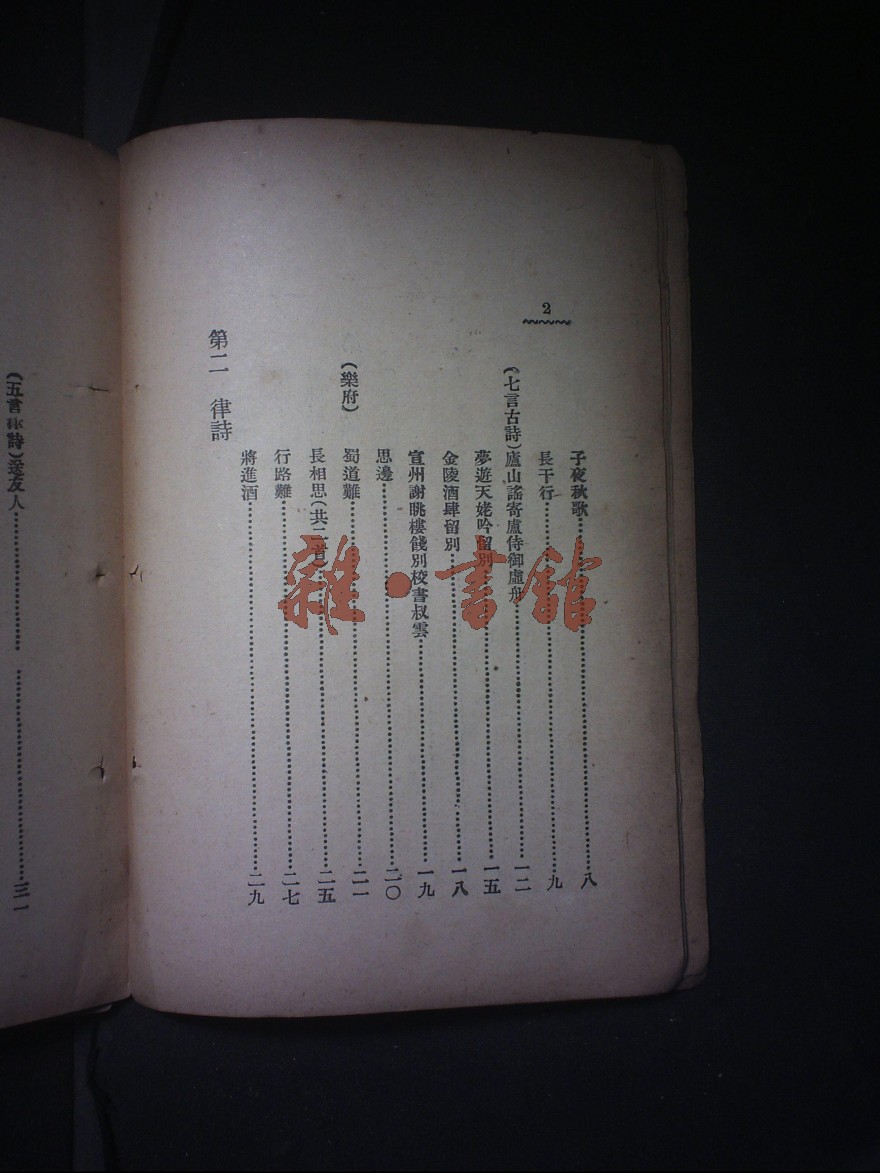 2
子夜秋歌……八
長干行……九
（七言古詩）廬山謠寄盧侍御虛舟……一二
夢遊天姥吟留別……一五
金陵酒肆留別……一八
宣州謝眺樓餞別校書叔雲……一九
思邊……二〇
（樂府）蜀道難……二一
長相思（共二首）……二五
行路難……二七
將進酒……二九
第二 律詩
（五言律詩）送友人……三一
雜·書館